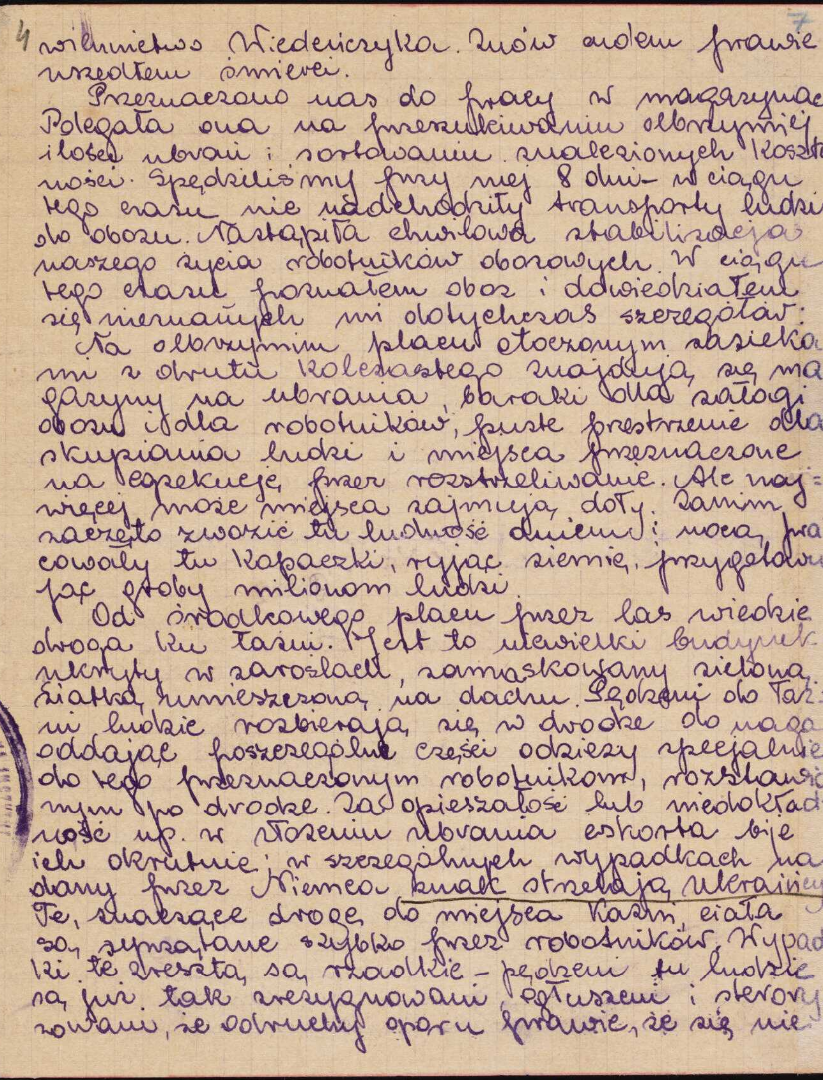 4 7
wiennictwo Wiedeńczyka. Znów cudem prawie
uszedłem śmierci.
Przeznaczono nas do pracy w magazynac
Polegała ona na przeszukiwaniu olbrzymiej
ilości ubrań i sortowaniu znalezionych koszt
ności. Spędziliśmy przy niej 8 dni – w ciągu
tego czasu nie nadchodziły transporty ludzi
do obozu. Nastąpiła chwilowa stabilizacja
naszego życia robotników obozowych. W ciągu
tego czasu poznałem obóz i dowiedziałem
się nieznanych mi dotychczas szczegółów:
Na olbrzymim placu otoczonym zasieka
mi z drutu kolczastego znajdują się ma
gazyny na ubrania, baraki dla załogi
obozu i dla robotników, puste przestrzenie dla
skupiania ludzi i miejsca przeznaczone
na egzekucje przez rozstrzeliwanie. Ale naj=
więcej może miejsca zajmują doły. Zanim
zaczęto zwozić tu ludność dniem i nocą, pra
cowały tu kopaczki, ryjąc ziemię, przygotowu
jąc groby milionom ludzi
Od środkowego placu przez las wiedzie
droga ku łaźni. Jest to niewielki budynek
ukryty w zaroślach, zamaskowany zieloną
siatką umieszczoną na dachu. Pędzeni do łaź
ni ludzie rozbierają się w drodze do naga
oddając poszczególne części odzieży specjalnie
do tego przeznaczonym robotnikom, rozstawio
nym po drodze. Za opieszałość lub niedokład
ność np. w złożeniu ubrania eskorta bije
ich okrutnie; w szczególnych wypadkach na
dany przez Niemca znak strzelają Ukraińcy
Te, znaczące drogę do miejsca kaźni, ciała
są sprzątane szybko przez robotników. Wypad
ki te zresztą są rzadkie – pędzeni tu ludzie
są już tak zrezygnowani, ogłuszeni i sterory
zowani, że odruchy oporu prawie, że się nie